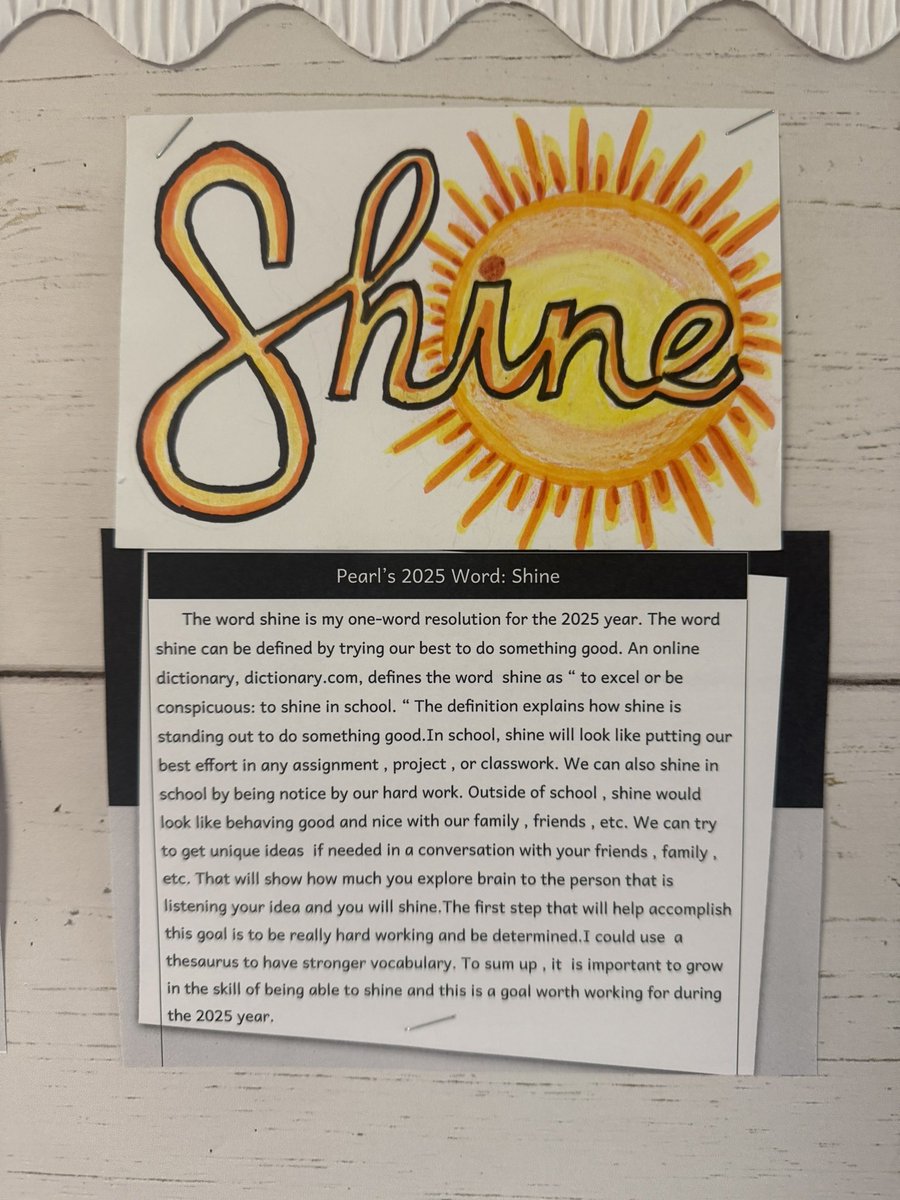 Shine
Pearl's 2025 Word: Shine
The word shine is my one-word resolution for the 2025 year. The word
shine can be defined by trying our best to do something good. An online
dictionary, dictionary.com, defines the word  shine as “ to excel or be
conspicuous: to shine in school. “ The definition explains how shine is
standing out to do something good.In school, shine will look like putting our
best effort in any assignment , project , or classwork. We can also shine in
school by being notice by our hard work. Outside of school , shine would
look like behaving good and nice with our family , friends , etc. We can try
to get unique ideas  if needed in a conversation with your friends , family ,
etc. That will show how much you explore brain to the person that is
listening your idea and you will shine.The first step that will help accomplish
this goal is to be really hard working and be determined.I could use  a
thesaurus to have stronger vocabulary. To sum up , it  is important to grow
in the skill of being able to shine and this is a goal worth working for during
the 2025 year.